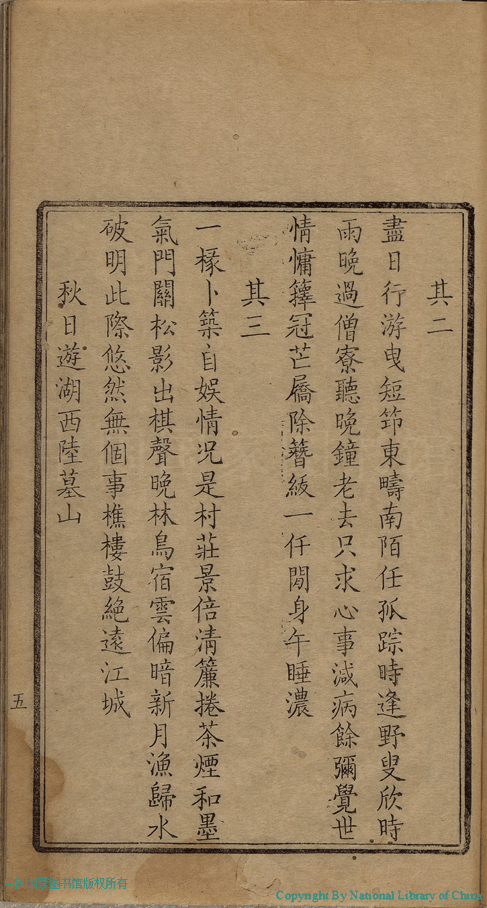 其二
盡日行游曳短筇東疇南陌任孤踪時逢野叟欣時
雨晚過僧寮聽晚鐘老去只求心事減病餘彌覺世
情慵籜冠芒屩除簪紱一仟閒身午睡濃
其三
一椽卜築自娛情况是村莊景倍清簾捲茶煙和墨
氣門關松影出棋聲晚林鳥宿雲偏暗新月漁歸水
破明此際悠然無個事樵樓鼓絶遠江城
秋日遊湖西陸墓山
五
中国国家图书馆版权所有
Copyright By National Library of China